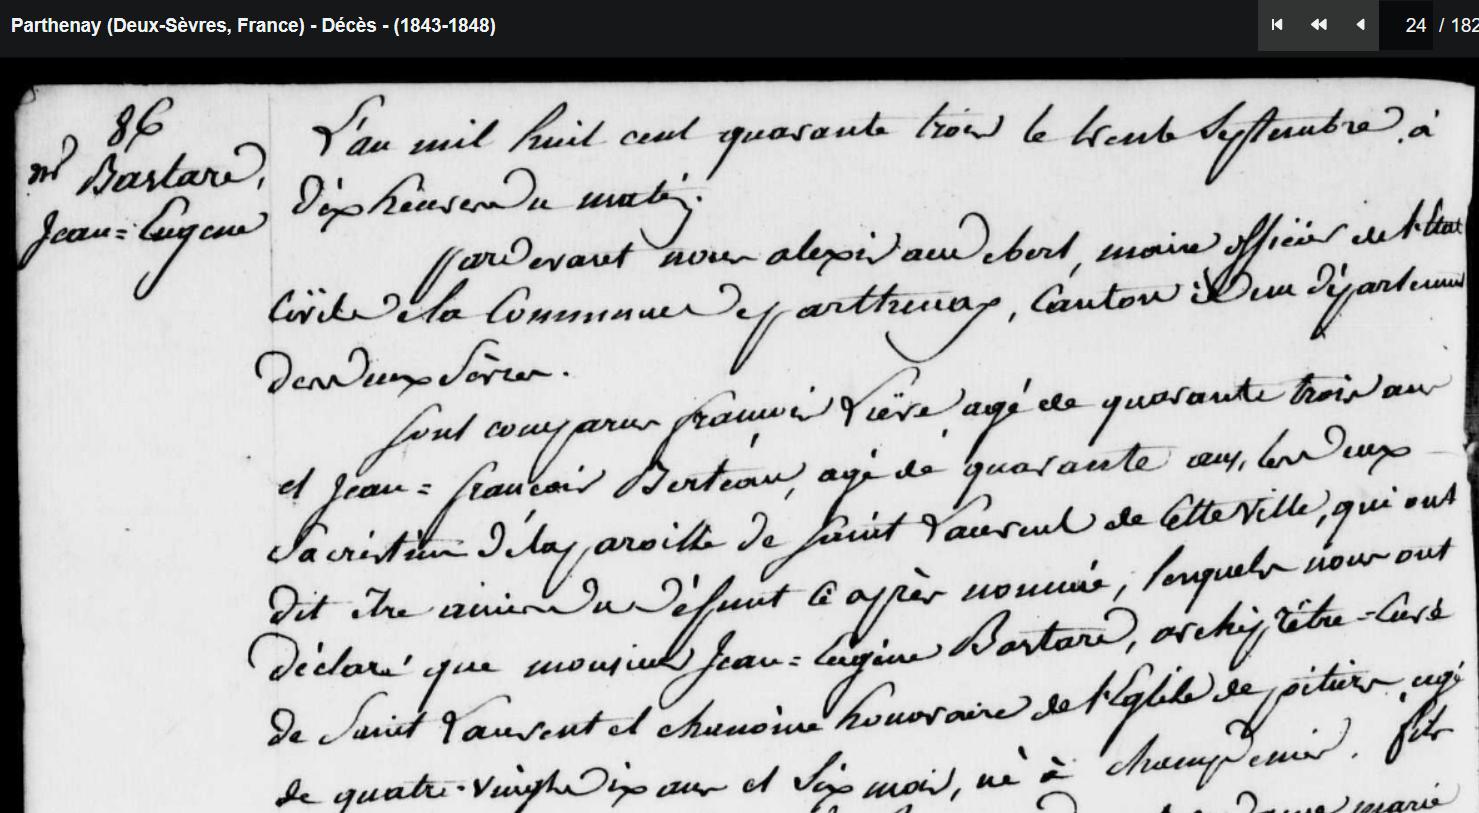 Parthenay (Deux-Sèvres, France) - Décès - (1843-1848)
24 / 182
86
mr Bastard,
Jean=Eugene
L'an mil huit cent quarante trois le trente Septembre à
dix heures du matin.
pardevant nous alexis audebert, maire officier de l'Etat
Civile de la Commune de parthenay, Canton idem département
des deux Sèvres.
sont comparus françois Lièvre agé de quarante trois ans
et Jean=françois Berteau, agé de quarante ans, les deux
Sacristain de la paroisse de Saint Laurent de Cette Ville, qui ont
dit être amis du défunt Ci après nommé, lesquels nous ont
déclaré que monsieur Jean=Eugène Bastard, archiprêtre=Curé
de Saint Laurent et chanoine honoraire de l'Eglise de poitiers, agé
de quatre-vingt dix ans et Six mois, né à champdenier. fils
dame marie